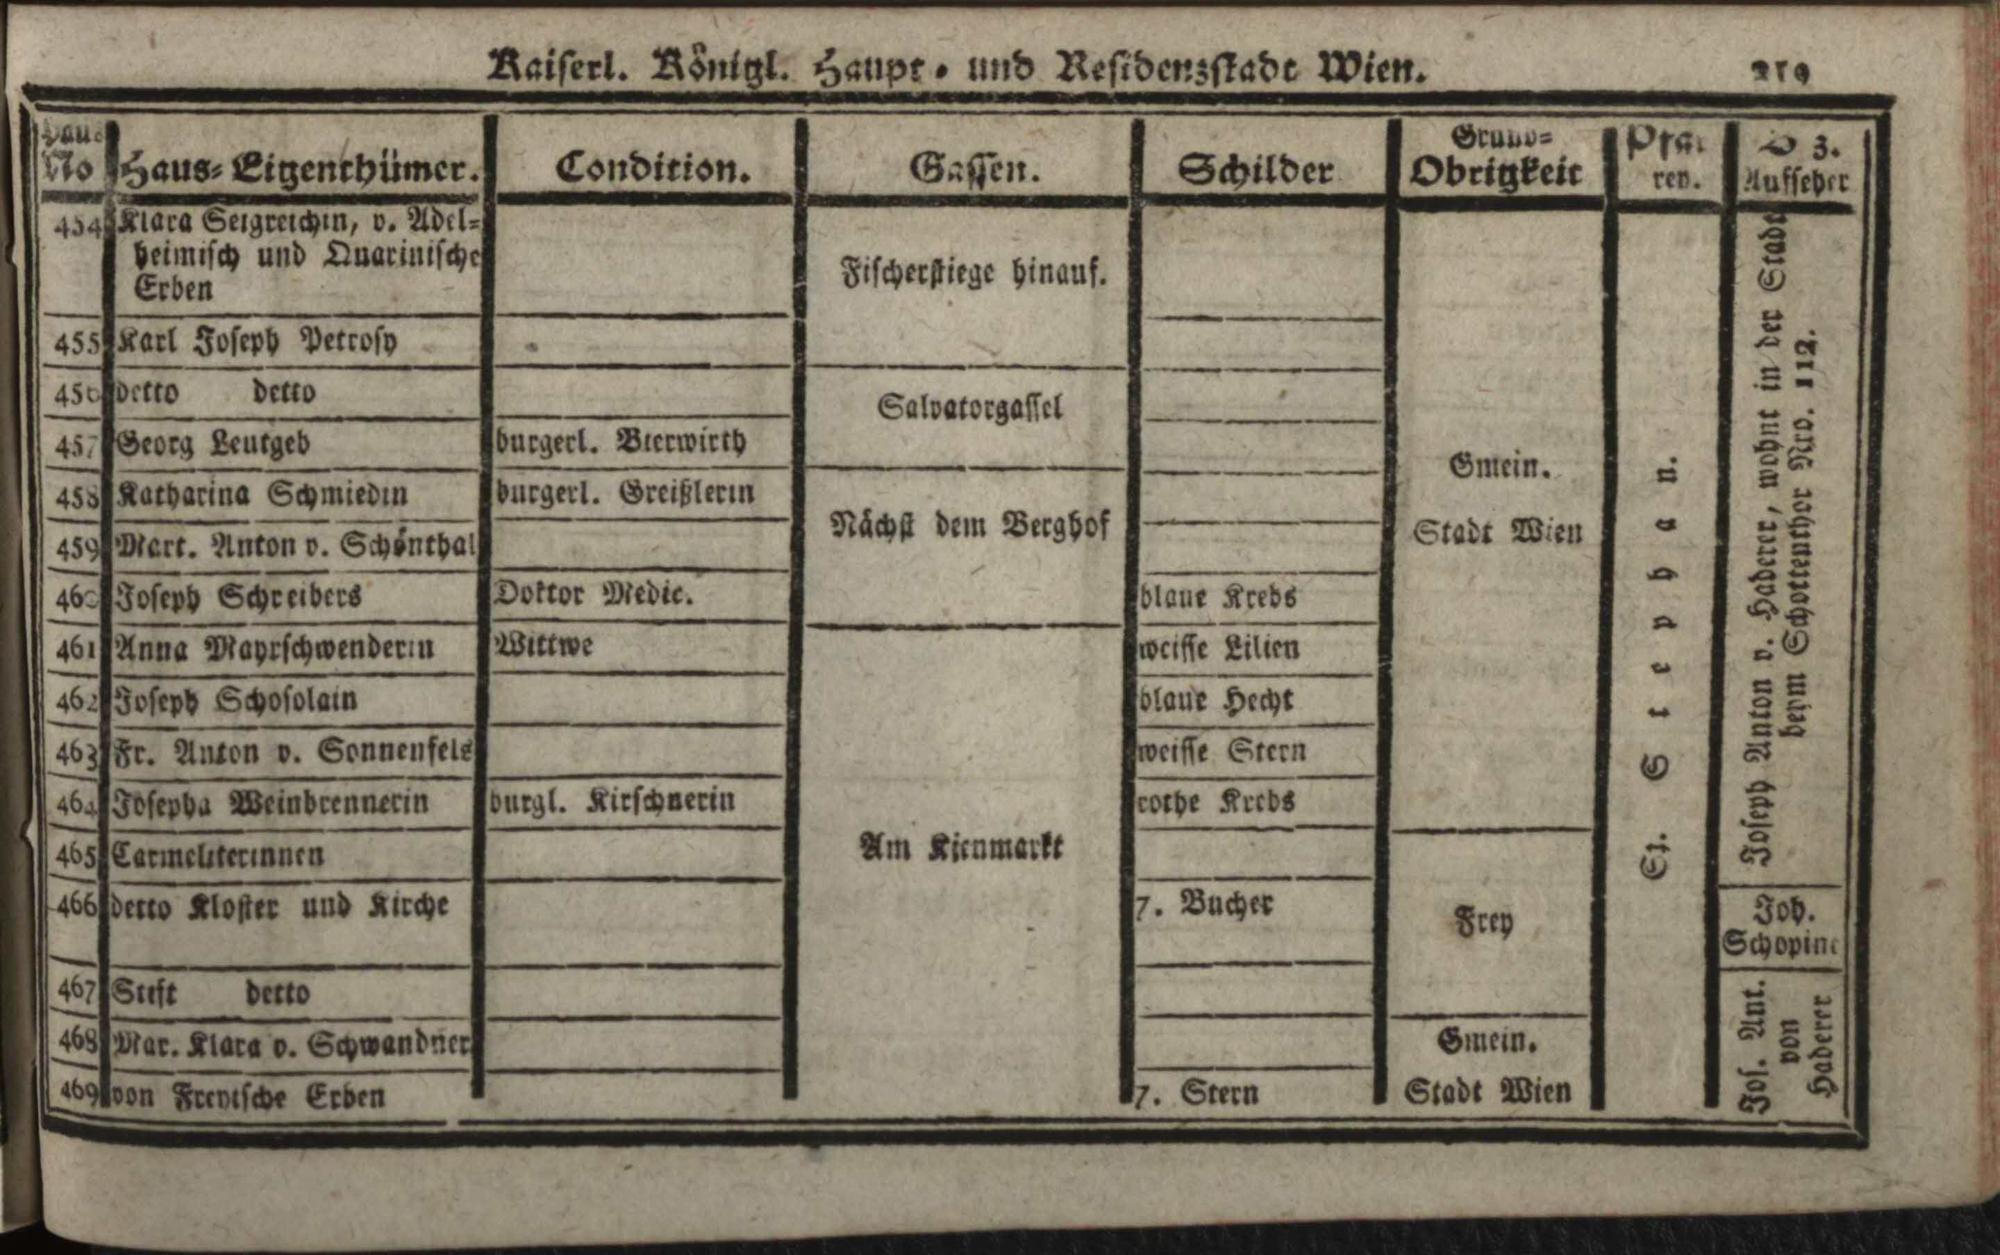 Kaiserl. Königl. Haupt- und Residenzstadt Wien. 219
Haus No Haus-Eigenthümer. Condition. Gassen. Schilder Grund-Obrigkeit Pfarren. Aufseher
454 Klara Seigreichin, v. Adel-
heimisch und Quarinische
Erben
Fischerstiege hinauf.
455 Karl Joseph Petrosy
456 detto detto
Salvatorgassel
457 Georg Leutgeb burgerl. Bierwirth
458 Katharina Schmiedin burgerl. Greißlerin
Nächst dem Berghof
459 Mart. Anton v. Schönthal
Gmein.
Stadt Wien
460 Joseph Schreibers Doktor Medic. blaue Krebs
461 Anna Mayrschwenderin Wittwe weisse Lilien
462 Joseph Schosolain blaue Hecht
463 Fr. Anton v. Sonnenfels weisse Stern
464 Josepha Weinbrennerin burgl. Kirschnerin rothe Krebs
Am Kienmarkt
465 Carmeliterinnen
466 detto Kloster und Kirche 7. Bucher
Frey
467 Stift detto
468 Mar. Klara v. Schwandner
Gmein.
Stadt Wien
469 von Freyische Erben 7. Stern
St. Stephan.
Joseph Anton v. Haderer, wohnt in der Stadt
beym Schottenthor Nro. 112.
Joh.
Schopine
Jos. Ant.
von
Haderer